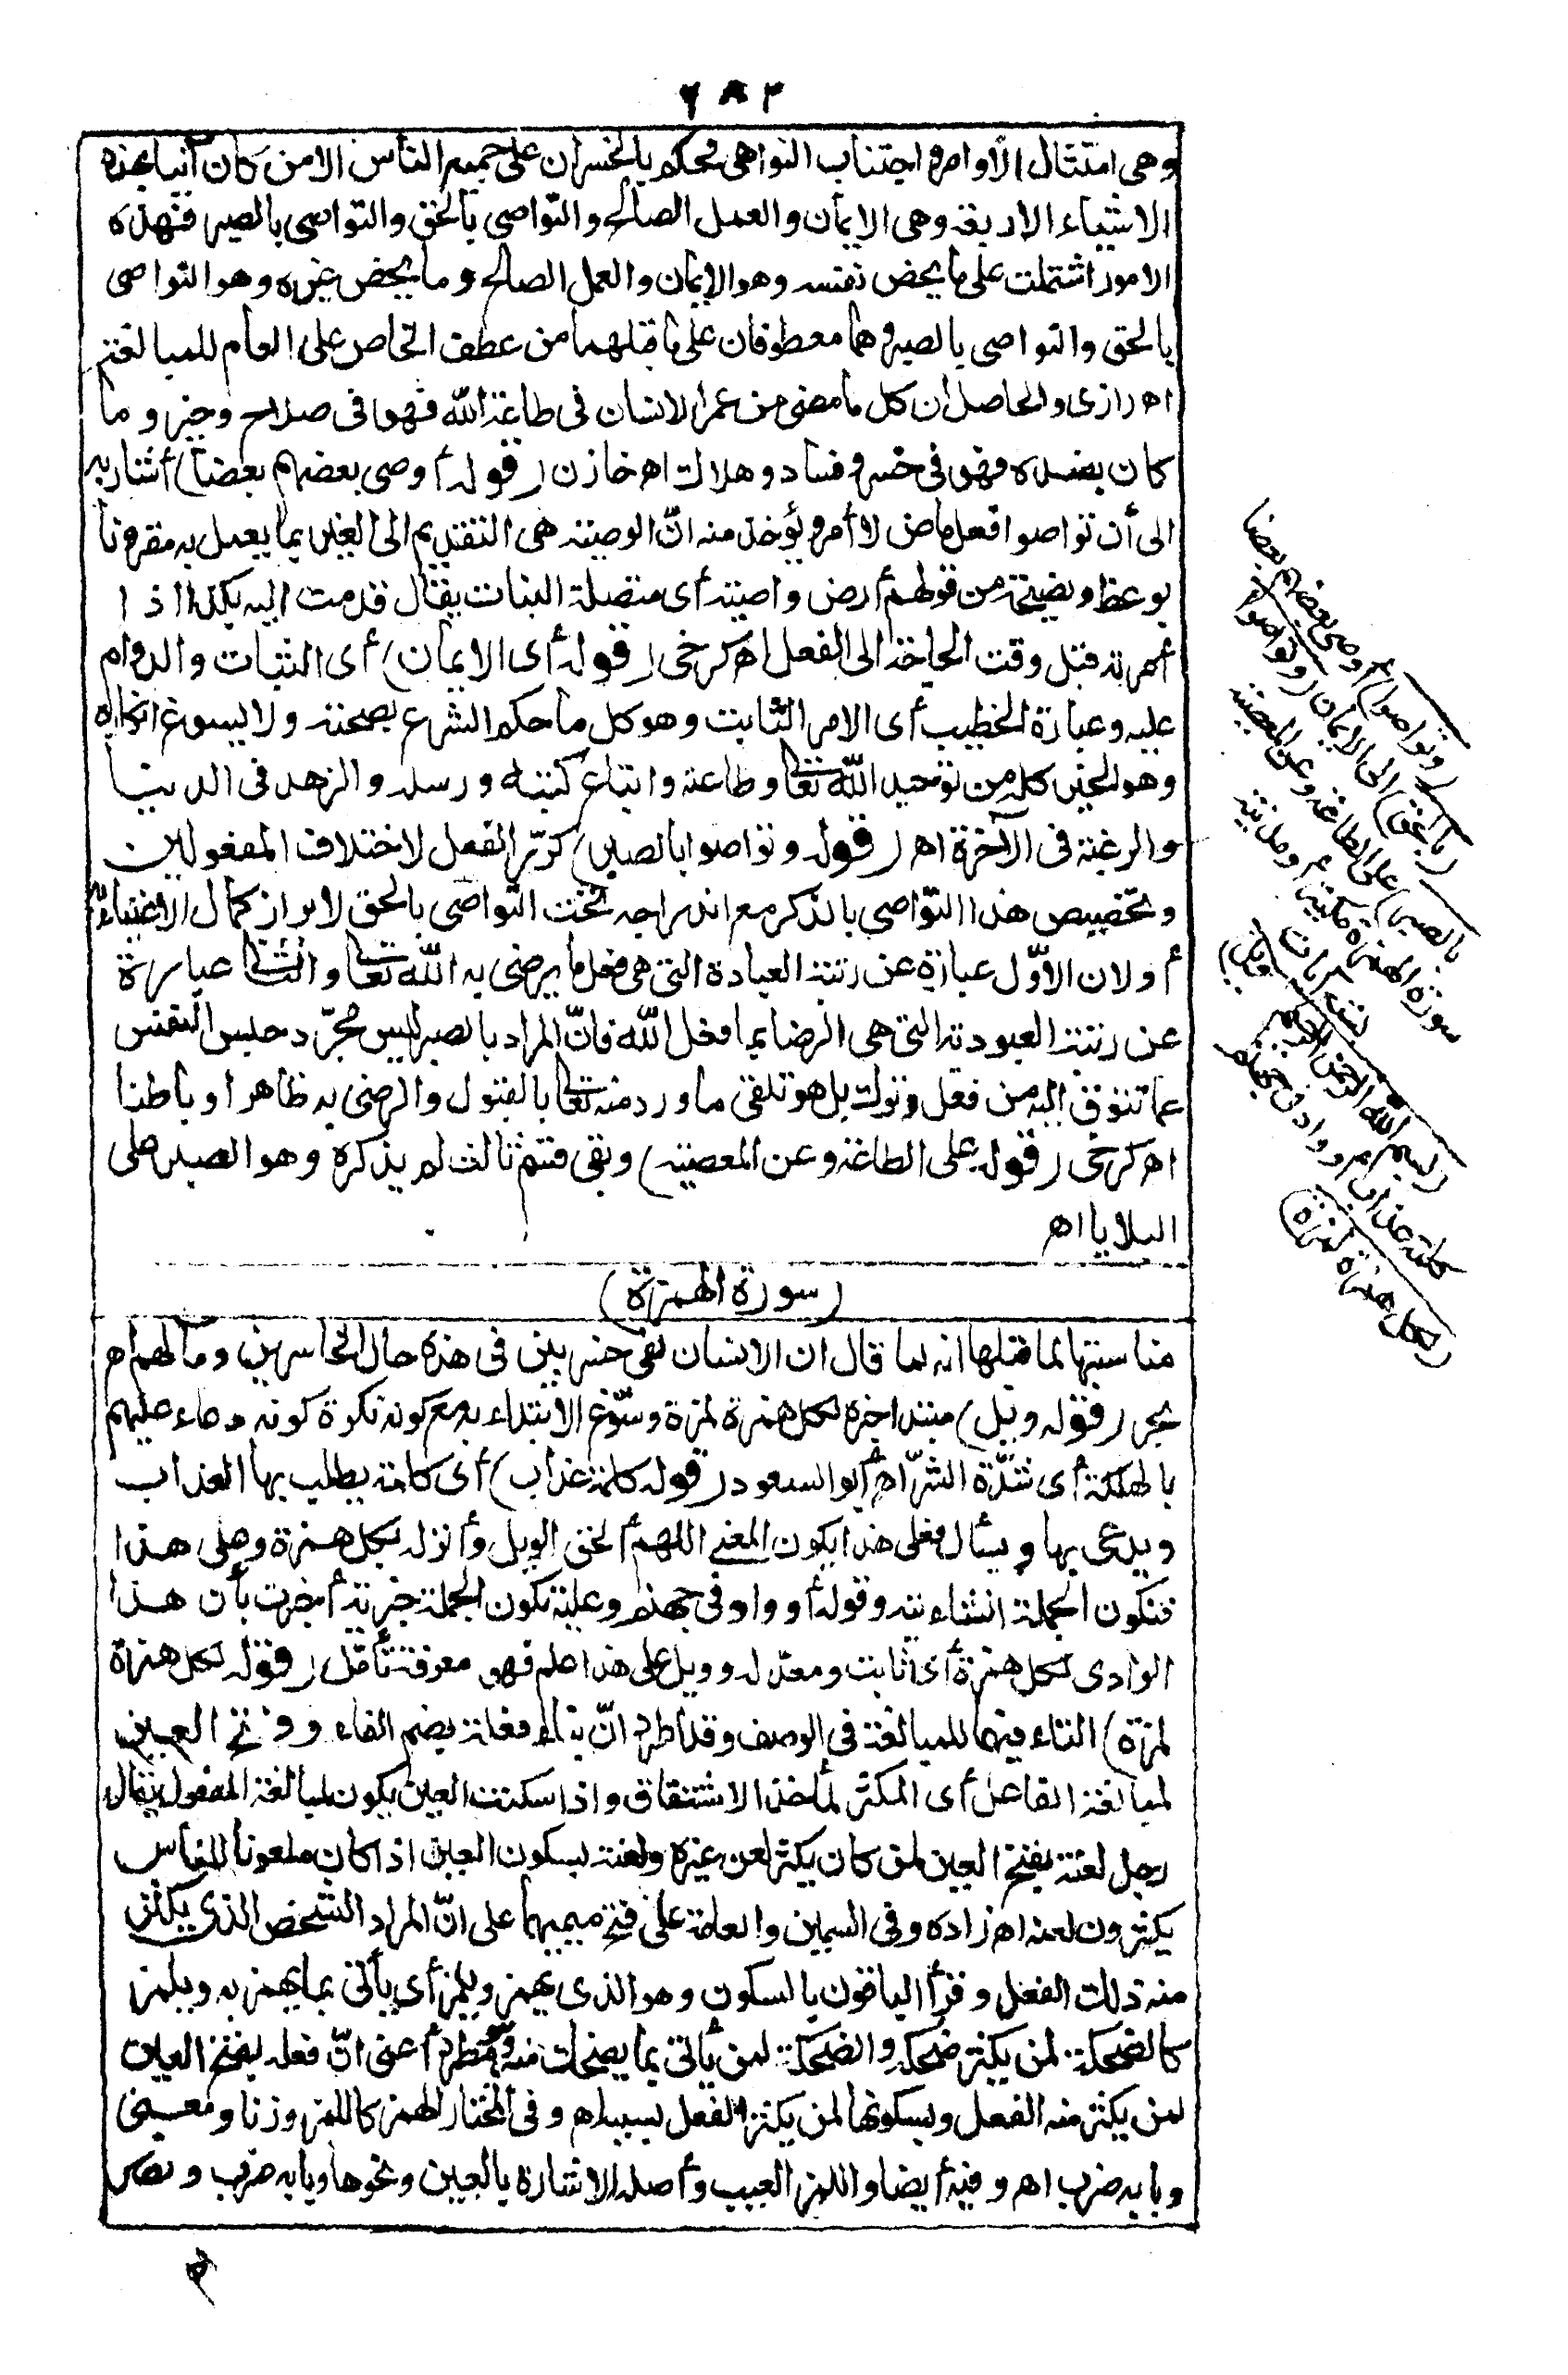 ٦٨٣
وهى امتثال الأوامر واجتناب النواهى فحكم بالخسران على جميع الناس الا من كان آتيا بهذه
الاشياء الاربعة وهى الايمان والعمل الصالح والتواصى بالحق والتواصى بالصبر فهذه
الامور اشتملت على ما يخص نفسه وهو الايمان والعمل الصالح وما يخص غيره وهو التواصى
بالحق والتواصى بالصبر وهما معطوفان على ما قبلهما من عطف الخاص على العام للمبالغة
اه رازى والحاصل ان كل ما مضى من عمر الانسان فى طاعة الله فهو فى صلاح وخير وما
كان بضده فهو فى خسر وفساد وهلاك اه خازن (قوله أوصى بعضهم بعضا) أشار به
الى أن تواصوا فعل ماض لا أمر ويؤخذ منه انّ الوصية هى التقديم الى الغير بما يعمل به مقرونا
بوعظ ونصيحة من قولهم أرض واصية أى متصلة النبات يقال قدمت اليه بكذا اذا
أمرته قبل وقت الحاجة الى الفعل اه كرخى (قوله أى الايمان) أى الثبات والدوام
عليه وعبارة الخطيب أى الامر الثابت وهو كل ما حكم الشرع بصحته ولا يسوغ انكاره
وهو الخير كله من توحيد الله تعالى وطاعته واتباع كتبه ورسله والزهد فى الدنيا
والرغبة فى الآخرة اه (قوله وتواصوا بالصبر) كرّر الفعل لاختلاف المفعولين
وتخصيص هذا التواصى بالذكر مع اندراجه تحت التواصى بالحق لابراز كمال الاعتناء به
أو لان الاوّل عبارة عن رتبة العبادة التى هى فعل ما يرضى به الله تعالى والثانى عبارة
عن رتبة العبودية التى هى الرضا بما فعل الله فانّ المراد بالصبر ليس مجرّد حبس النفس
عما تتوق اليه من فعل وترك بل هو تلقى ما ورد منه تعالى بالقبول والرضى به ظاهرا وباطنا
اه كرخى (قوله على الطاعة وعن المعصية) وبقى قسم ثالث لم يذكره وهو الصبر على
البلايا اه
(سورة الهمزة)
مناسبتها لما قبلها انه لما قال ان الانسان لفى خسر بين فى هذه حال الخاسرين ومآلهم اه
بحر (قوله ويل) مبتدا خبره لكل همزة لمزة وسوّغ الابتداء به مع كونه نكرة كونه دعاء عليهم
بالهلكة أى شدّة الشرّ اه أبو السعود (قوله كلمة عذاب) أى كلمة يطلب بها العذاب
ويدعى بها ويسأل فعلى هذا يكون المعنى اللهم ألحق الويل وأنزله بكل همزة وعلى هذا
فتكون الجملة انشائية وقوله أو واد فى جهنم وعليه تكون الجملة خبرية أخبرت بأن هذا
الوادى لكل همزة أى ثابت ومعدّ له وويل على هذا علم فهو معرفة تأمّل (قوله لكل همزة
لمزة) التاء فيهما للمبالغة فى الوصف وقد اطرد انّ بناء فعلة بضم الفاء وفتح العين
لمبالغة الفاعل أى المكثر لمأخذ الاشتقاق واذا سكنت العين يكون لمبالغة المفعول يقال
رجل لعنة بفتح العين لمن كان يكثر لعن غيره ولعنة بسكون العين اذا كان ملعونا للناس
يكثرون لعنه اه زاده وفى السمين والعامة على فتح ميميهما على انّ المراد الشخص الذى يكثر
منه ذلك الفعل وقرأ الباقون بالسكون وهو الذى يهمز ويلمز أى يأتى بما يهمز به ويلمز
كالضحكة لمن يكثر ضحكه والضحكة لمن يأتى بما يضحك منه وهو مطرد أعنى انّ فعلة بفتح العين
لمن يكثر منه الفعل وبسكونها لمن يكثر الفعل بسببه اه وفى المختار الهمز كاللمز وزنا ومعنى
وبابه ضرب اه وفيه أيضا واللمز العيب وأصله الاشارة بالعين ونحوها وبابه ضرب ونصر
(وتواصوا) أوصى بعضهم بعضا
(بالحق) الى الايمان (وتواصوا
بالصبر) على الطاعة وعن المعصية
سورة الهمزة مكية أو مدنية
تسع آيات
(بسم الله الرحمن الرحيم ويل)
كلمة عذاب أو واد فى جهنم
(لكل همزة لمزة)